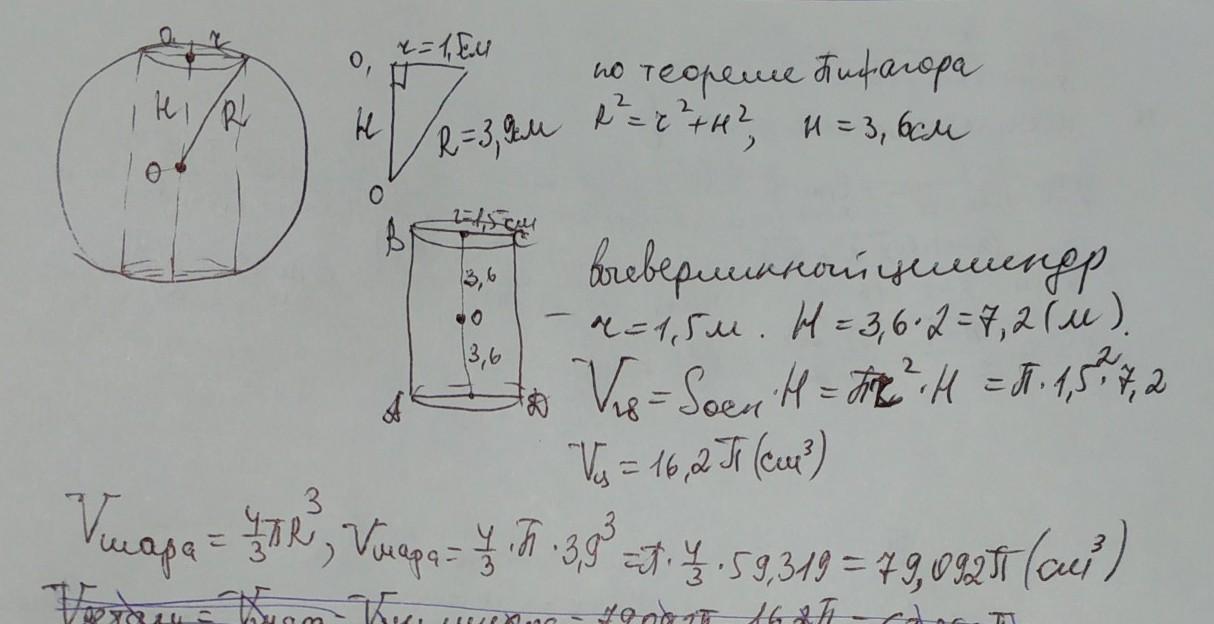 O₁ r
H R
O
O₁ r=1,5см
H R=3,9см
O
по теореме Пифагора
R²=r²+H², H=3,6см
B r=1,5см C
3,6
O
3,6
A D
высверлинный цилиндр
– r=1,5м. H=3,6·2=7,2(м).
V = Sосн·H = πr²·H = π·1,5²·7,2
Vц = 16,2π(см³)
Vшара = 4/3 πR³, Vшара = 4/3·π·3,9³ = π·4/3·59,319 = 79,092π(см³)